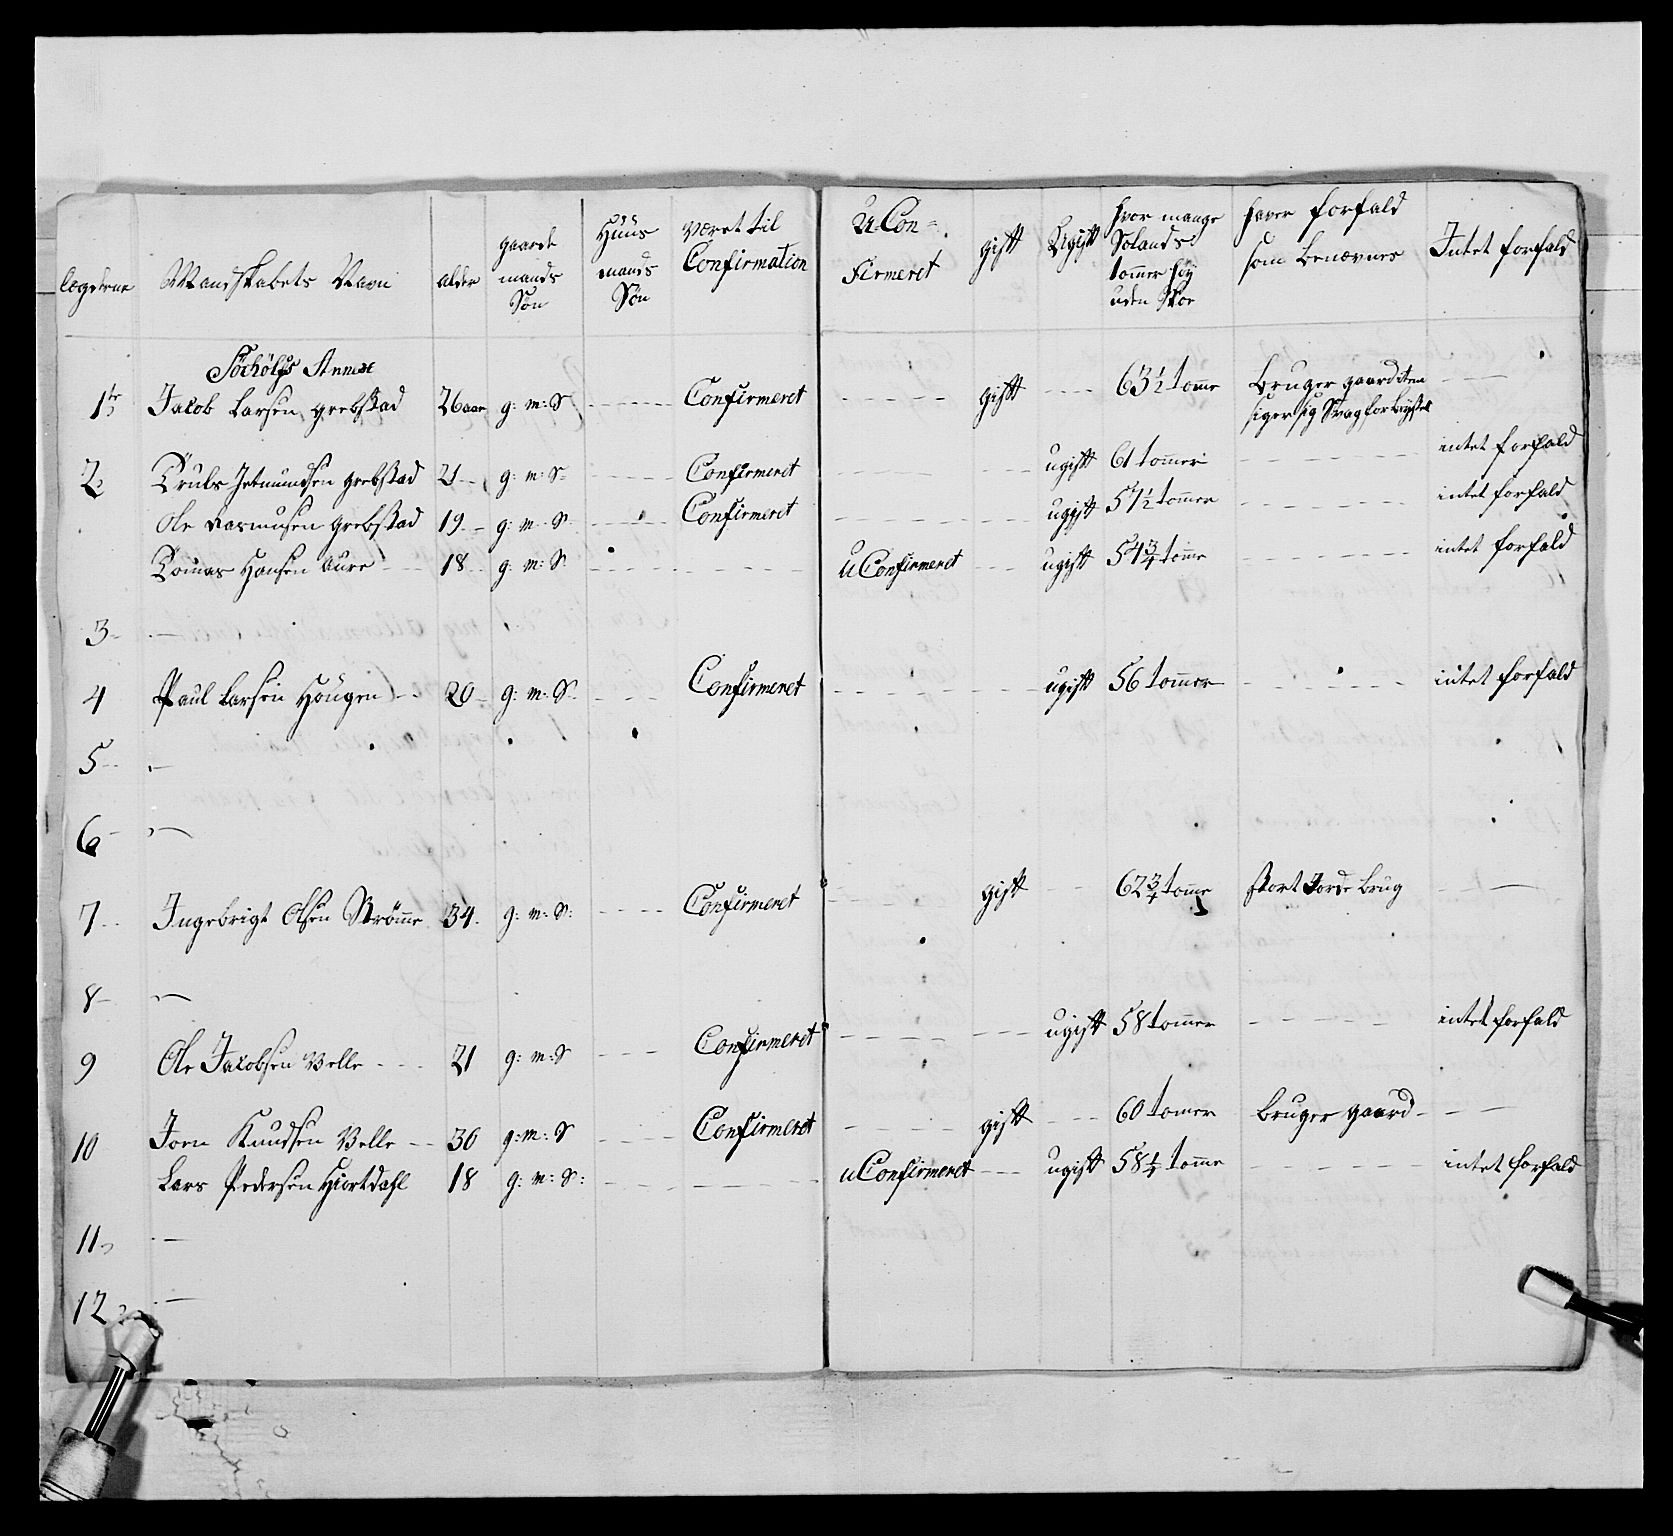 lægderne Mandskabets Navn alder gaarde mands Søn Huus mands Søn været til Confirmation UCon= firmeret gift Ugift hvor mange Solands tommer høy uden Skoe haver forfald som benævnes Intet forfald
Annex
1te Jacob Larsen Grebstad 26 aar g: m: S Confirmeret gift 63½ tomme Bruger gaard iten siger sig Svag for brystet
2 Truls Jetmundsen Grebstad 21 g: m: S Confirmeret ugift 61 tommer intet forfald
Ole Rasmusen Grebstad 19 g: m: S Confirmeret ugift 57½ tommer intet forfald
Tomas Hansen Aure 18 g: m: S UConfirmeret ugift 54¾ tomme intet forfald
3 —
4 Paul Larsen Høugen 20 g: m: S Confirmeret ugift 56 tommer intet forfald
5 —
6 —
7 Ingebrigt Olsen Strømme 34 g: m: S: Confirmeret gift 62¾ tomme stort Jorde brug
8 —
9 Ole Jacobsen Velle 21 g: m: S Confirmeret ugift 58 tommer intet forfald
10 Joen Knudsen Velle 30 g: m: S Confirmeret gift 60 tomer bruger gaard
Lars Pedersen Hiortdahl 18 g: m: S: uConfirmeret ugift 58¼ tomme intet forfald
11 —
12 —